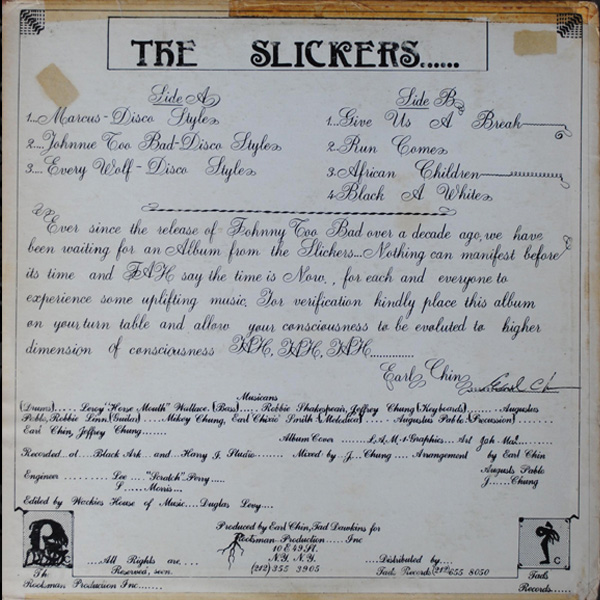 THE SLICKERS......
Side A
1...Marcus-Disco Style
2....Johnnie Too Bad-Disco Style
3....Every Wolf-Disco Style
Side B
1...Give Us A Break
2..Run Come
3.African Children
4.Black A White
Ever since the release of Johnny Too Bad over a decade ago, we have
been waiting for an Album from the Slickers...Nothing can manifest before
its time and JAH say the time is Now. , for each and everyone to
experience some uplifting music. For verification kindly place this album
on your turn table and allow your consciousness to be evoluted to higher
dimension of consciousness JAH, JAH, JAH............
Earl Chin
Musicans
(Drums)..... Leroy "Horse Mouth" Wallace. (Bass).... Robbie Shakespeair, Jeffrey Chung (Keyboards)....... Augustus
Pablo, Robbie Linn. (Guitar).... Mikey Chung, Earl Chixie Smith (Melodica)...... Augustus Pablo (Precession)......
Earl Chin, Jeffrey Chung......
Album Cover ...... L.A.M.-1-Graphics... Art Jah Mal....
Recorded..at....Black Ark....and... Harry J. Studio...... Mixed by...J...Chung.... Arrangement by Earl Chin
Augusts Pablo
J......Chung
Engineer ........ Lee ..."Scratch" Perry.....
S.....Morris...
Edited by Wackies House of Music....Duglas Levy....
Produced by Earl Chin, Tad Dawkins for
Rootsman Production..... Inc
10 E 49 St.
N.Y. N.Y.
(212) 355 3905
....All Rights are....
Reserved, soon.
...Distributed by...
Tads Records (212) 655 8050
Th
Rootsman Production Inc......
C
Tads
Records.....